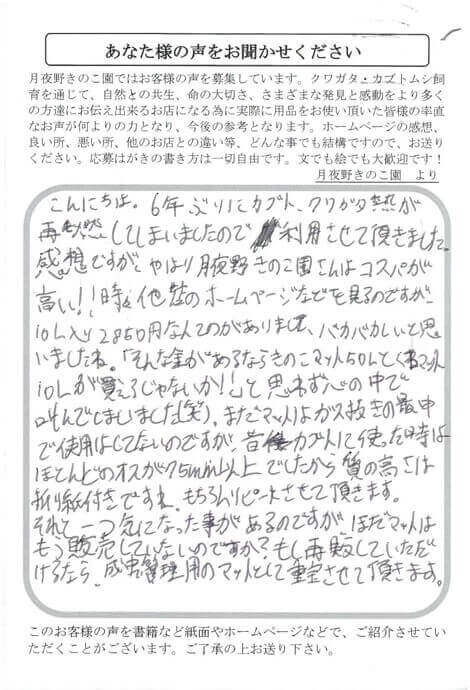 あなた様の声をお聞かせください
月夜野きのこ園ではお客様の声を募集しています。クワガタ・カブトムシ飼
育を通じて、自然との共生、命の大切さ、さまざまな発見と感動をより多く
の方達にお伝え出来るお店になる為に実際に用品をお使い頂いた皆様の率直
なお声が何よりの力となり、今後の参考となります。ホームページの感想、
良い所、悪い所、他のお店との違い等、どんな事でも結構ですので、お送り
ください。応募はがきの書き方は一切自由です。文でも絵でも大歓迎です！
月夜野きのこ園　より
こんにちは。6年ぶりにカブト、クワガタ熱が
再燃してしまいましたので利用させて頂きました。
感想ですが、やはり月夜野きのこ園さんはコスパが
高い!!時々他社のホームページなどを見るのですが
10L入り2850円なんてのがありまして、バカバカしいと思
いましたね。「そんな金があるならきのこマット50Lとくぬマット
10Lが買えるじゃないか!」と思わず心の中で
叫んでしまいました(笑)。まだマットはガス抜きの最中
で使用はしてないのですが、昔カブトに使った時は
ほとんどのオスが75mm以上でしたから質の高さは
折り紙付きですね。もちろんリピートさせて頂きます。
それと一つ気になった事があるのですが、ほだマットは
もう販売していないのですか?もし再販していただ
けるなら、成虫管理用のマットとして重宝させて頂きます。
このお客様の声を書籍など紙面やホームページなどで、ご紹介させてい
ただくことがございます。ご了承の上お送り下さい。